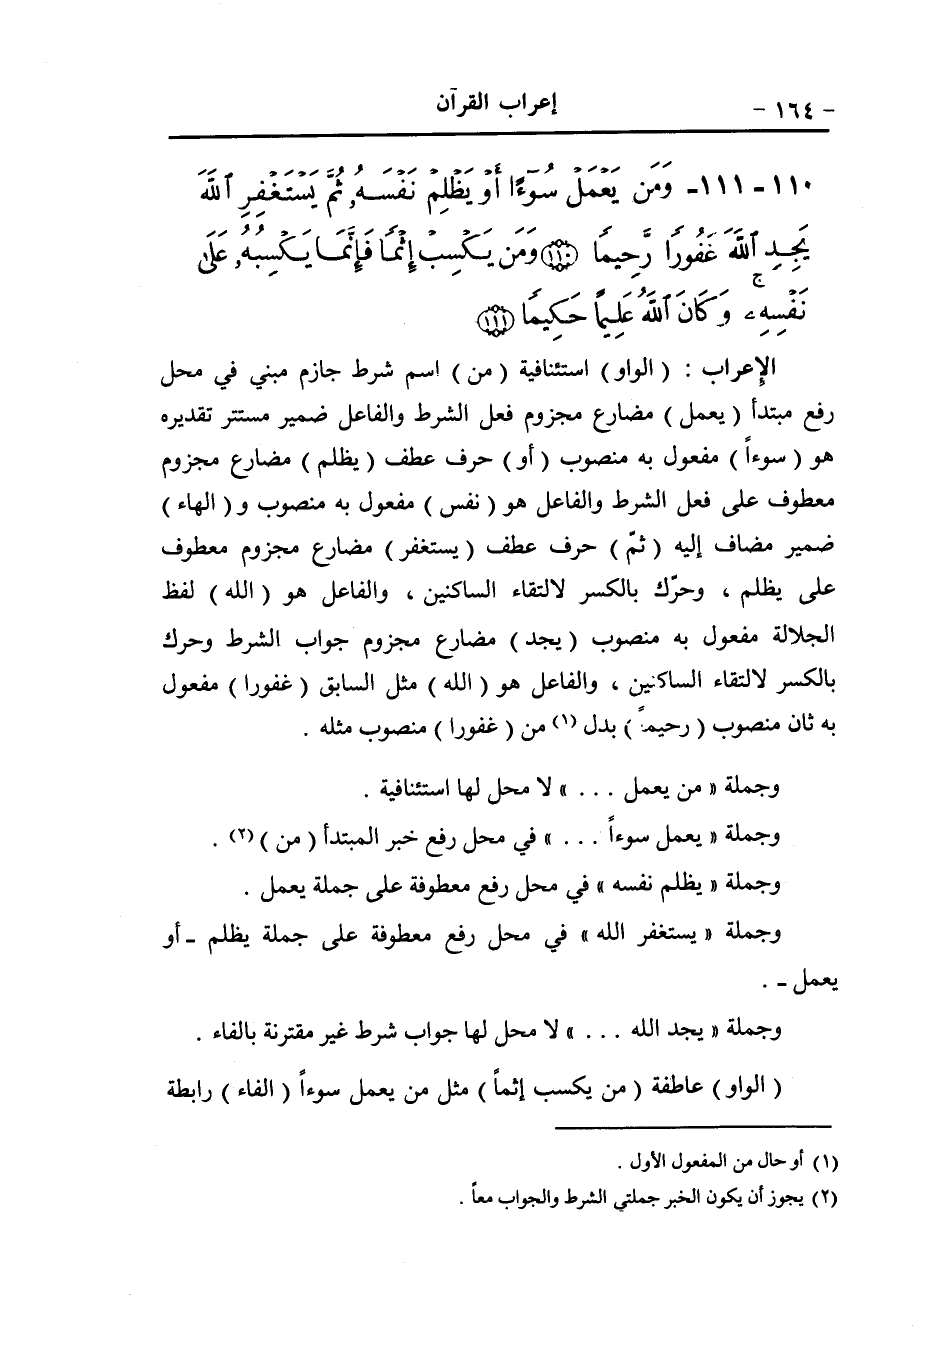 - ١٦٤ - إعراب القرآن
١١٠ - ١١١- وَمَن يَعْمَلْ سُوٓءًا أَوْ يَظْلِمْ نَفْسَهُۥ ثُمَّ يَسْتَغْفِرِ ٱللَّهَ
يَجِدِ ٱللَّهَ غَفُورًا رَّحِيمًا ﴿١١٠﴾ وَمَن يَكْسِبْ إِثْمًا فَإِنَّمَا يَكْسِبُهُۥ عَلَىٰ
نَفْسِهِۦ ۚ وَكَانَ ٱللَّهُ عَلِيمًا حَكِيمًا ﴿١١١﴾
الإعراب : ( الواو ) استئنافية ( من ) اسم شرط جازم مبني في محل
رفع مبتدأ ( يعمل ) مضارع مجزوم فعل الشرط والفاعل ضمير مستتر تقديره
هو ( سوءاً ) مفعول به منصوب ( أو ) حرف عطف ( يظلم ) مضارع مجزوم
معطوف على فعل الشرط والفاعل هو ( نفس ) مفعول به منصوب و ( الهاء )
ضمير مضاف إليه ( ثمّ ) حرف عطف ( يستغفر ) مضارع مجزوم معطوف
على يظلم ، وحرّك بالكسر لالتقاء الساكنين ، والفاعل هو ( الله ) لفظ
الجلالة مفعول به منصوب ( يجد ) مضارع مجزوم جواب الشرط وحرك
بالكسر لالتقاء الساكنين ، والفاعل هو ( الله ) مثل السابق ( غفورا ) مفعول
به ثان منصوب ( رحيماً ) بدل (١) من ( غفورا ) منصوب مثله .
وجملة « من يعمل . . . » لا محل لها استئنافية .
وجملة « يعمل سوءاً . . . » في محل رفع خبر المبتدأ ( من ) (٢) .
وجملة « يظلم نفسه » في محل رفع معطوفة على جملة يعمل .
وجملة « يستغفر الله » في محل رفع معطوفة على جملة يظلم - أو
يعمل - .
وجملة « يجد الله . . . » لا محل لها جواب شرط غير مقترنة بالفاء .
( الواو ) عاطفة ( من يكسب إثماً ) مثل من يعمل سوءاً ( الفاء ) رابطة
(١) أو حال من المفعول الأول .
(٢) يجوز أن يكون الخبر جملتي الشرط والجواب معاً .